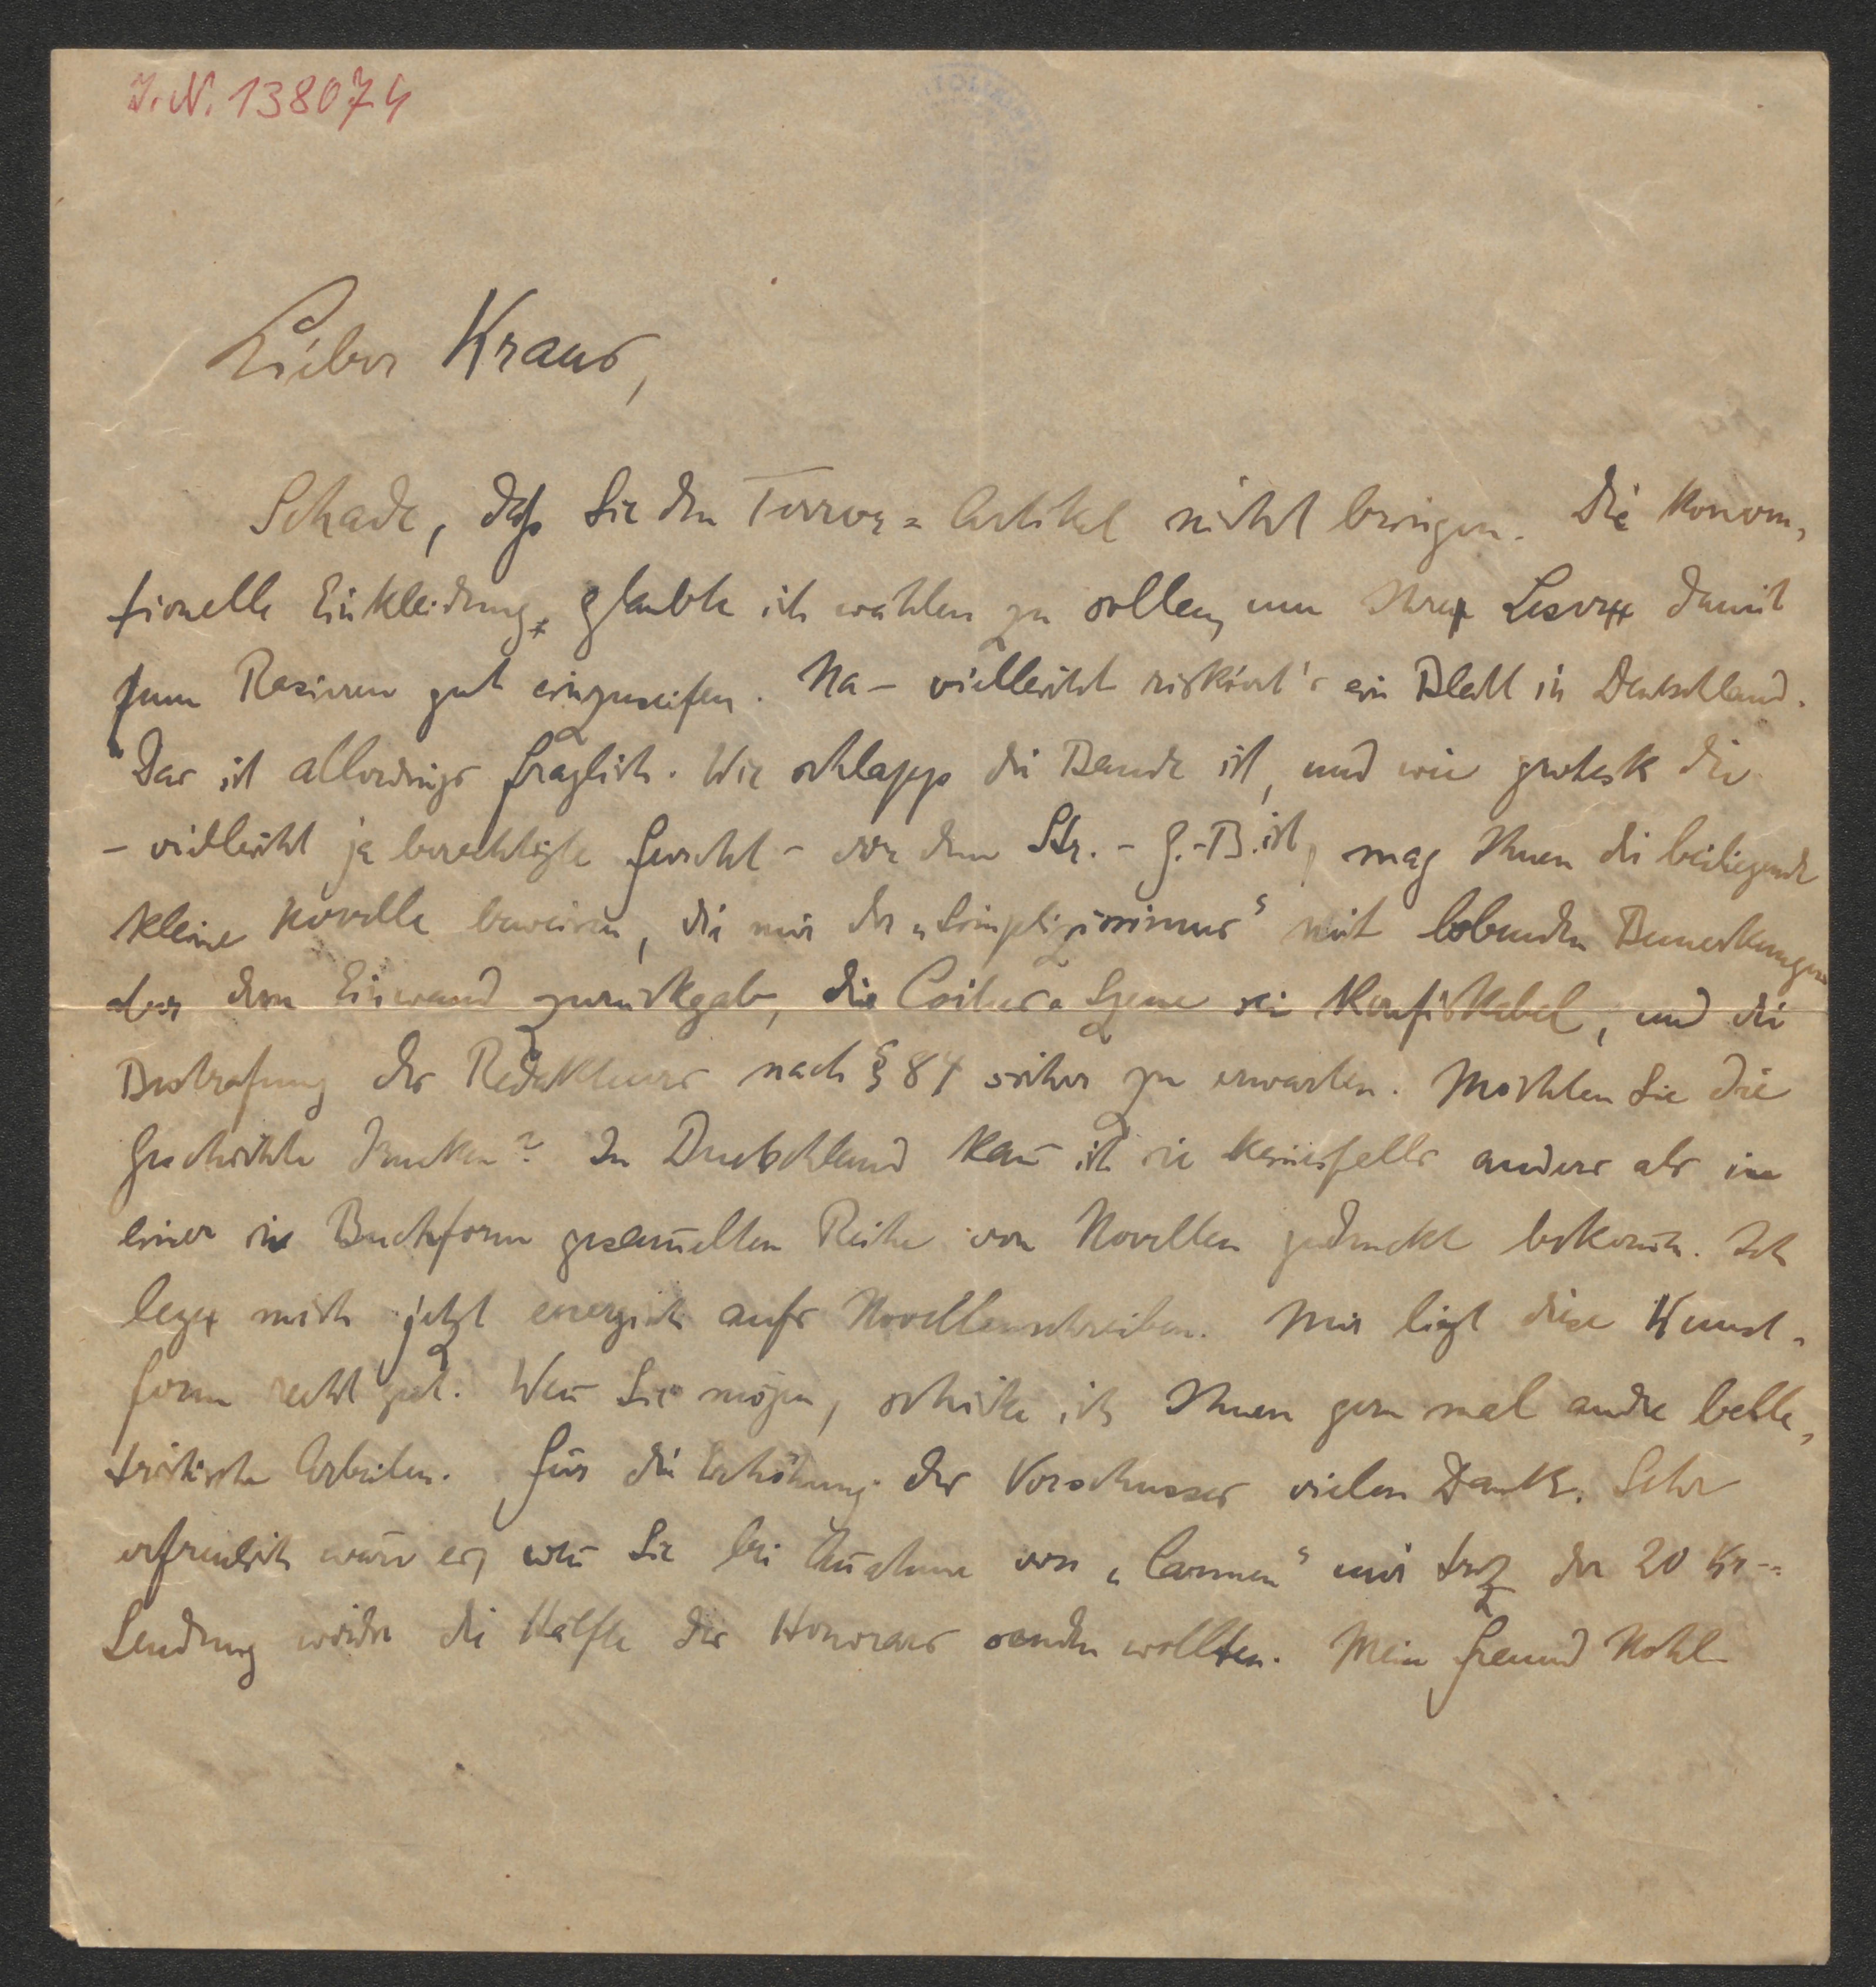 I. N. 138074
Lieber Kraus,
Schade, daß Sie den Terror-Artikel nicht bringen. Die konven-
tionelle Einkleidung glaubte ich wählen zu sollen, um Ihre Leser damit
zum Rasieren gut einzuseifen. Na – vielleicht riskiert's ein Blatt in Deutschland.
Das ist allerdings fraglich. Wie schlapp die Bande ist, und wie grotesk die
– vielleicht ja berechtigte Furcht – vor dem Str.-G.-B. ist, mag Ihnen die beiliegende
kleine Novelle beweisen, die mir der „Simplizissimus“ mit lobenden Bemerkungen
aber dem Einwand zurückgab, die Coitus-Szene sei konfiskabel, und die
Bestrafung des Redakteurs nach § 184 sicher zu erwarten. Möchten Sie die
Geschichte drucken? In Deutschland kan̄ ich sie keinesfalls anders als in
einer in Buchform gesam̄elten Reihe von Novellen gedruckt bekom̄en. Ich
lege mich jetzt energisch aufs Novellenschreiben. Mir liegt diese Kunst-
form recht gut. Wen̄ Sie mögen, schicke ich Ihnen gern mal andre belle-
tristische Arbeiten. Für die Erhöhung des Vorschusses vielen Dank. Sehr
erfreulich wäre es, wen̄ Sie bei An̄ahme von „Carmen“ mir trotz der 20 Kr.-
Sendung wieder die Hälfte des Honorars senden wollten. Mein Freund Nohl